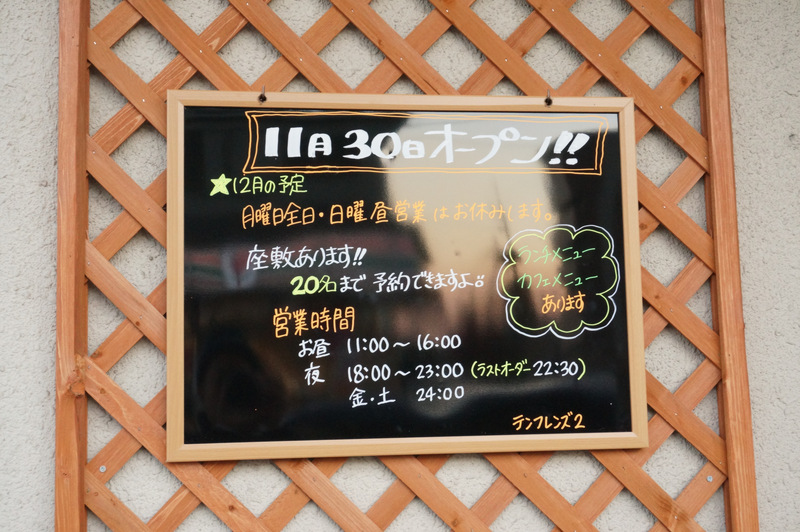 11月30日オープン!!
★12月の予定
月曜日全日・日曜昼営業はお休みします。
座敷あります!!
20名まで予約できますよ。
ランチメニュー
カフェメニュー
あります
営業時間
お昼 11:00〜16:00
夜 18:00〜23:00(ラストオーダー22:30)
金・土 24:00
テンフレンズ2